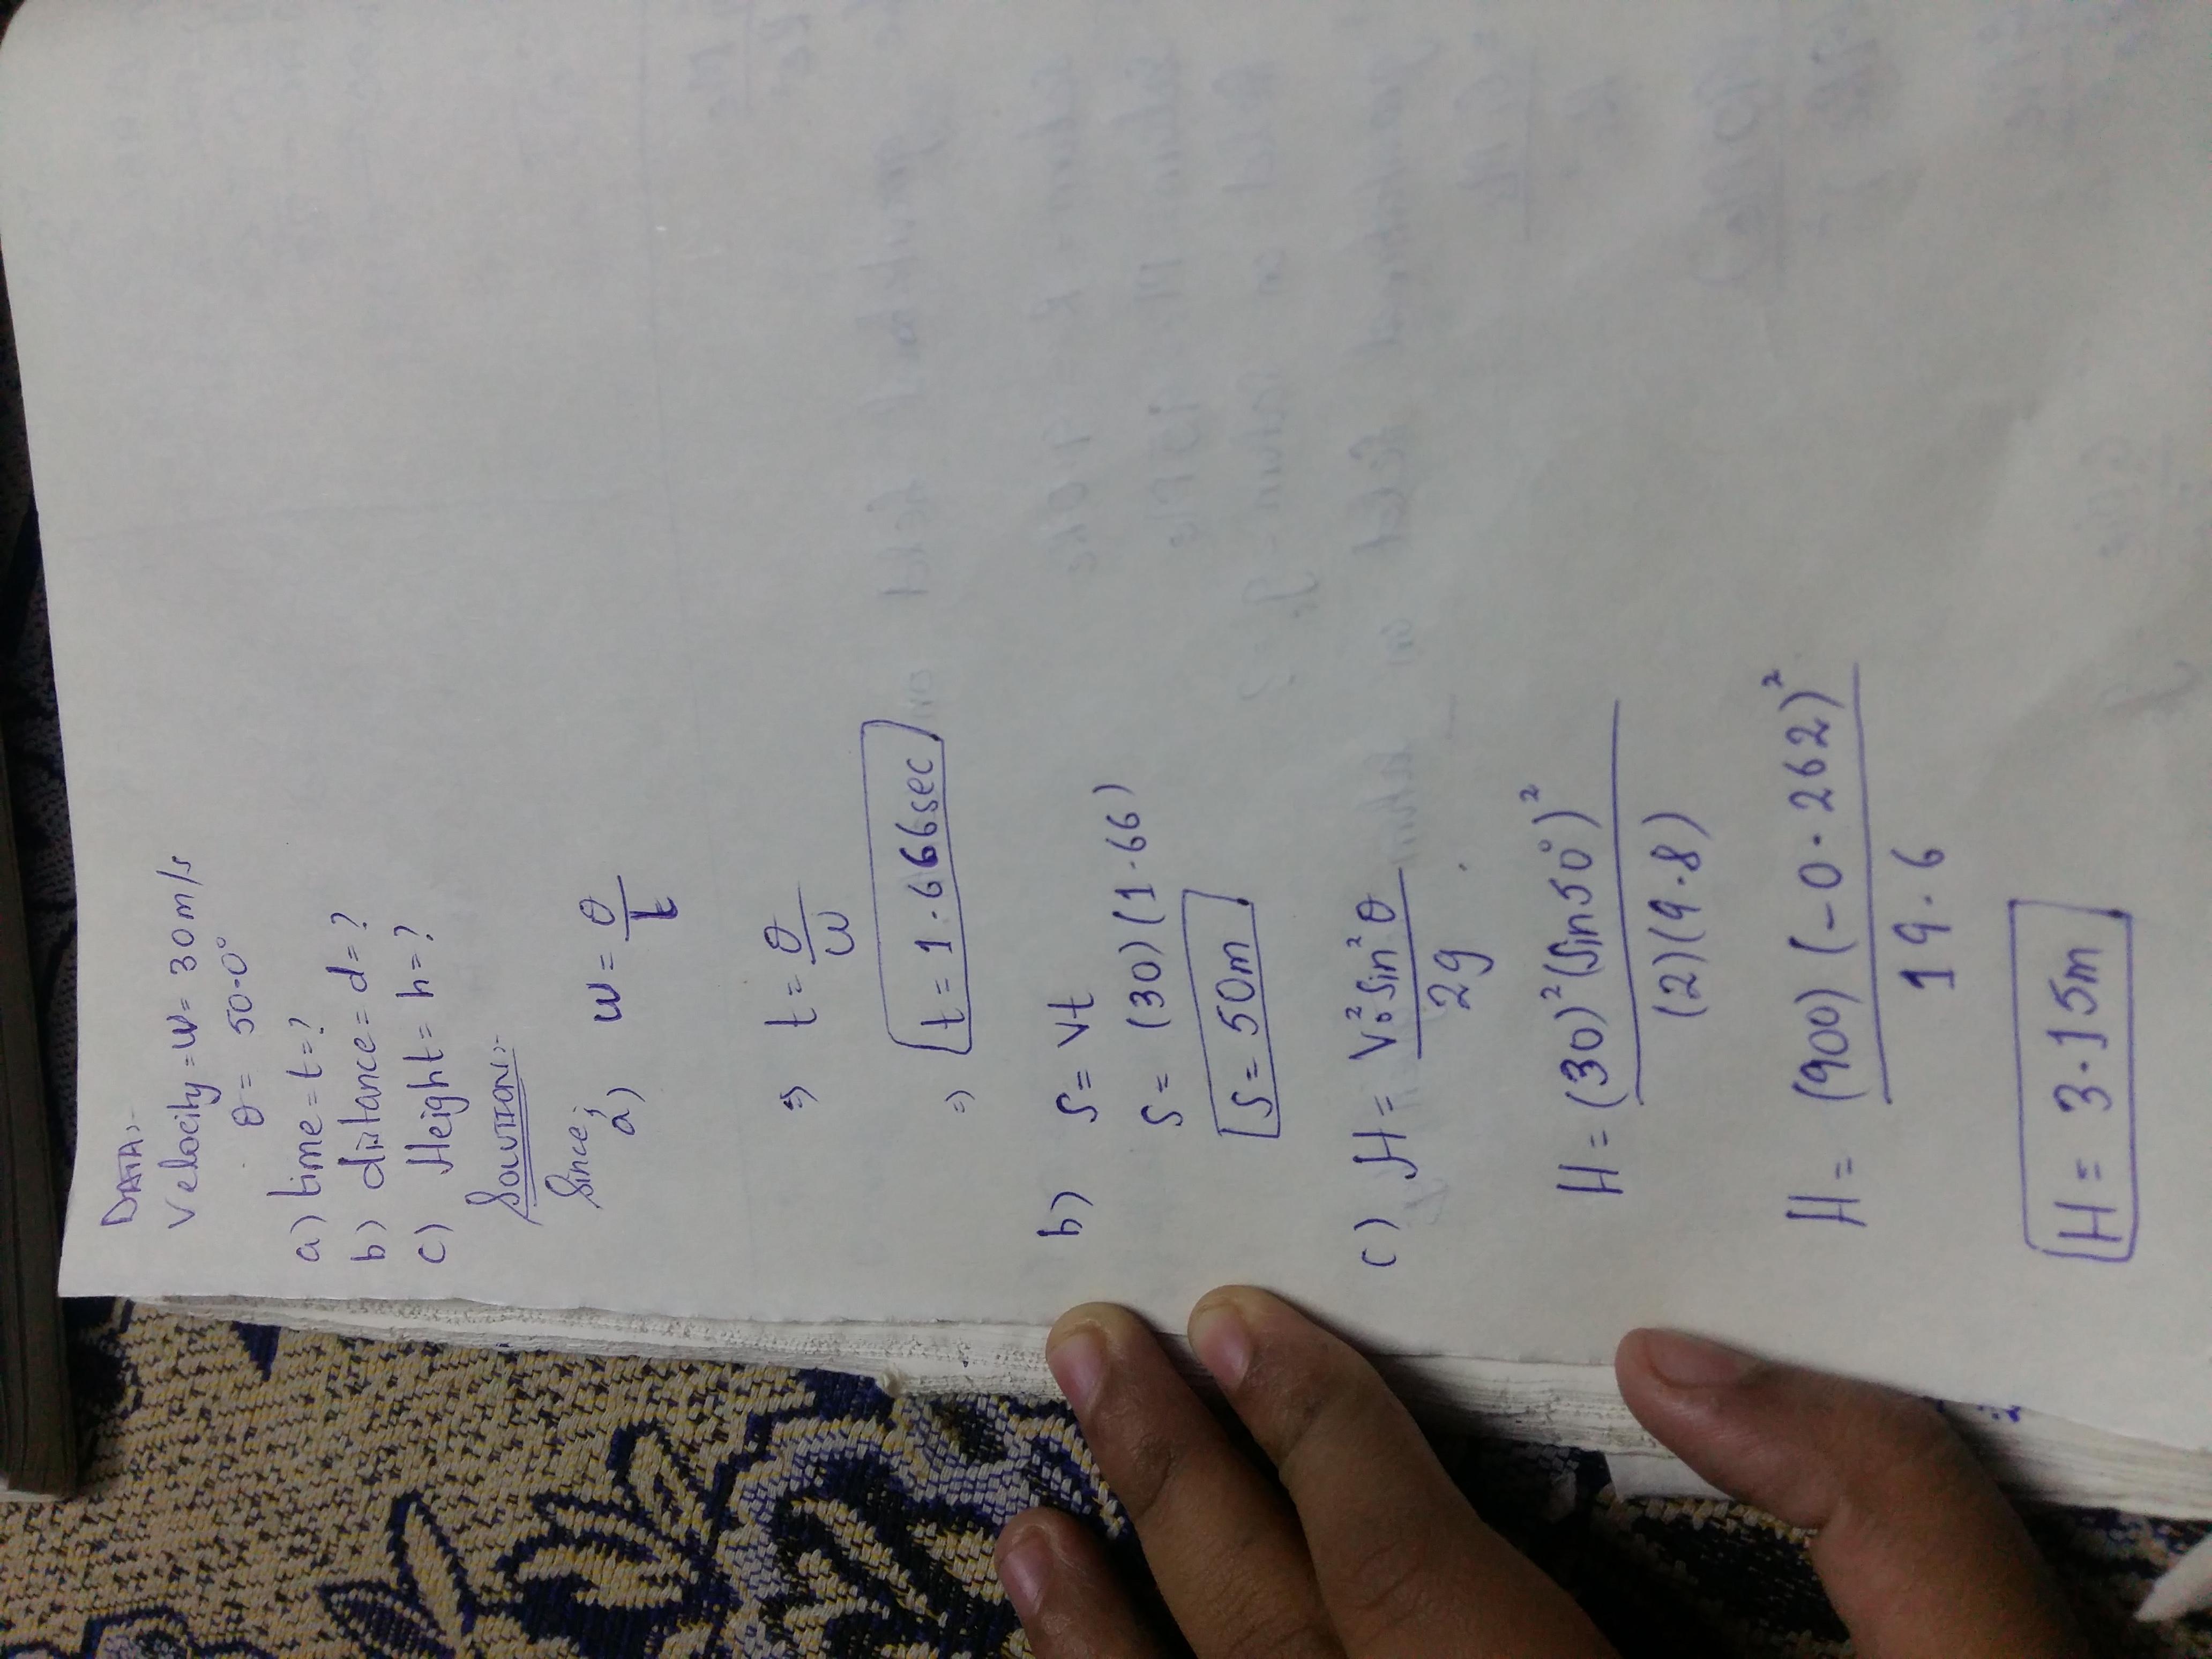 DATA:-
Velocity = w = 30m/s
θ = 50.0°
a) time = t = ?
b) distance = d = ?
c) Height = h = ?
SOLUTION:-
Since;
a) w = θ/t
⇒ t = θ/w
⇒ t = 1.666sec
b) S = vt
S = (30)(1.66)
S = 50m
c) H = V₀² sin² θ / 2g
H = (30)² (Sin 50°)² / (2)(9.8)
H = (900) (-0.262)² / 19.6
H = 3.15m